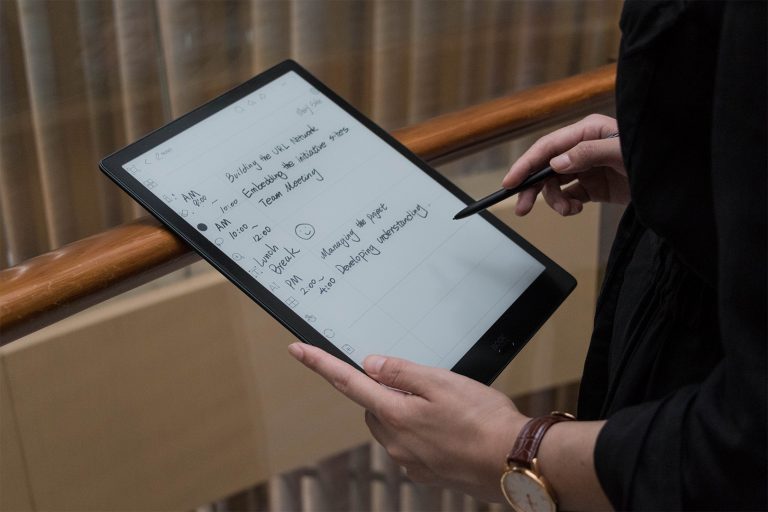 AM
10:00
Building the URL Network
Embedding the initiative sites
Team Meeting
AM
10:00 ~ 12:00
Lunch
Break
PM
2:00~
4:00
Managing the Project
Developing understanding